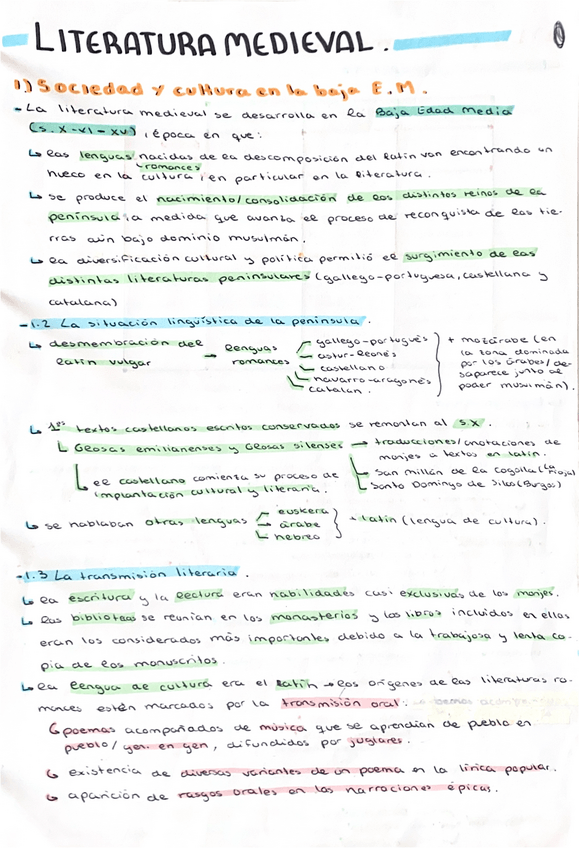 LITERATURA MEDIEVAL.
1) Sociedad y cultura en la baja E.M.
- La literatura medieval se desarrolla en la Baja Edad Media
(s. X-XI-XV), época en que:
↳ las lenguas nacidas de la descomposición del latín van encontrando un
romances
hueco en la cultura, en particular en la literatura.
↳ se produce el nacimiento/consolidación de los distintos reinos de la
península, a medida que avanza el proceso de reconquista de las tie-
rras aún bajo dominio musulmán.
↳ la diversificación cultural y política permitió el surgimiento de las
distintas literaturas peninsulares (gallego-portuguesa, castellana y
catalana)
- 1.2 La situación lingüística de la península.
↳ desmembración del latín vulgar → lenguas romances
gallego-portugués
astur-leonés
castellano
navarro-aragonés
catalán.
+ mozárabe (en
la zona dominada
por los árabes/de-
saparece junto al
poder musulmán).
↳ 1os textos castellanos escritos conservados se remontan al s.X.
↳ Glosas emilianenses y Glosas silenses → traducciones/anotaciones de
monjes a textos en latín.
↳ San Millán de la Cogolla (La Rioja)
↳ Santo Domingo de Silos (Burgos)
↳ el castellano comienza su proceso de
implantación cultural y literaria.
↳ se hablaban otras lenguas
euskera
árabe
hebreo
+ latín (lengua de cultura).
- 1.3 La transmisión literaria.
↳ la escritura y la lectura eran habilidades casi exclusivas de los monjes.
↳ las bibliotecas se reunían en los monasterios y los libros incluidos en ellas
eran los considerados más importantes debido a la trabajosa y lenta co-
pia de los manuscritos.
↳ la lengua de cultura era el latín → los orígenes de las literaturas ro-
mances están marcados por la transmisión oral.
↳ poemas acompañados de música que se aprendían de pueblo en
pueblo/gen. en gen, difundidos por juglares.
↳ existencia de diversas variantes de un poema en la lírica popular.
↳ aparición de rasgos orales en las narraciones épicas.